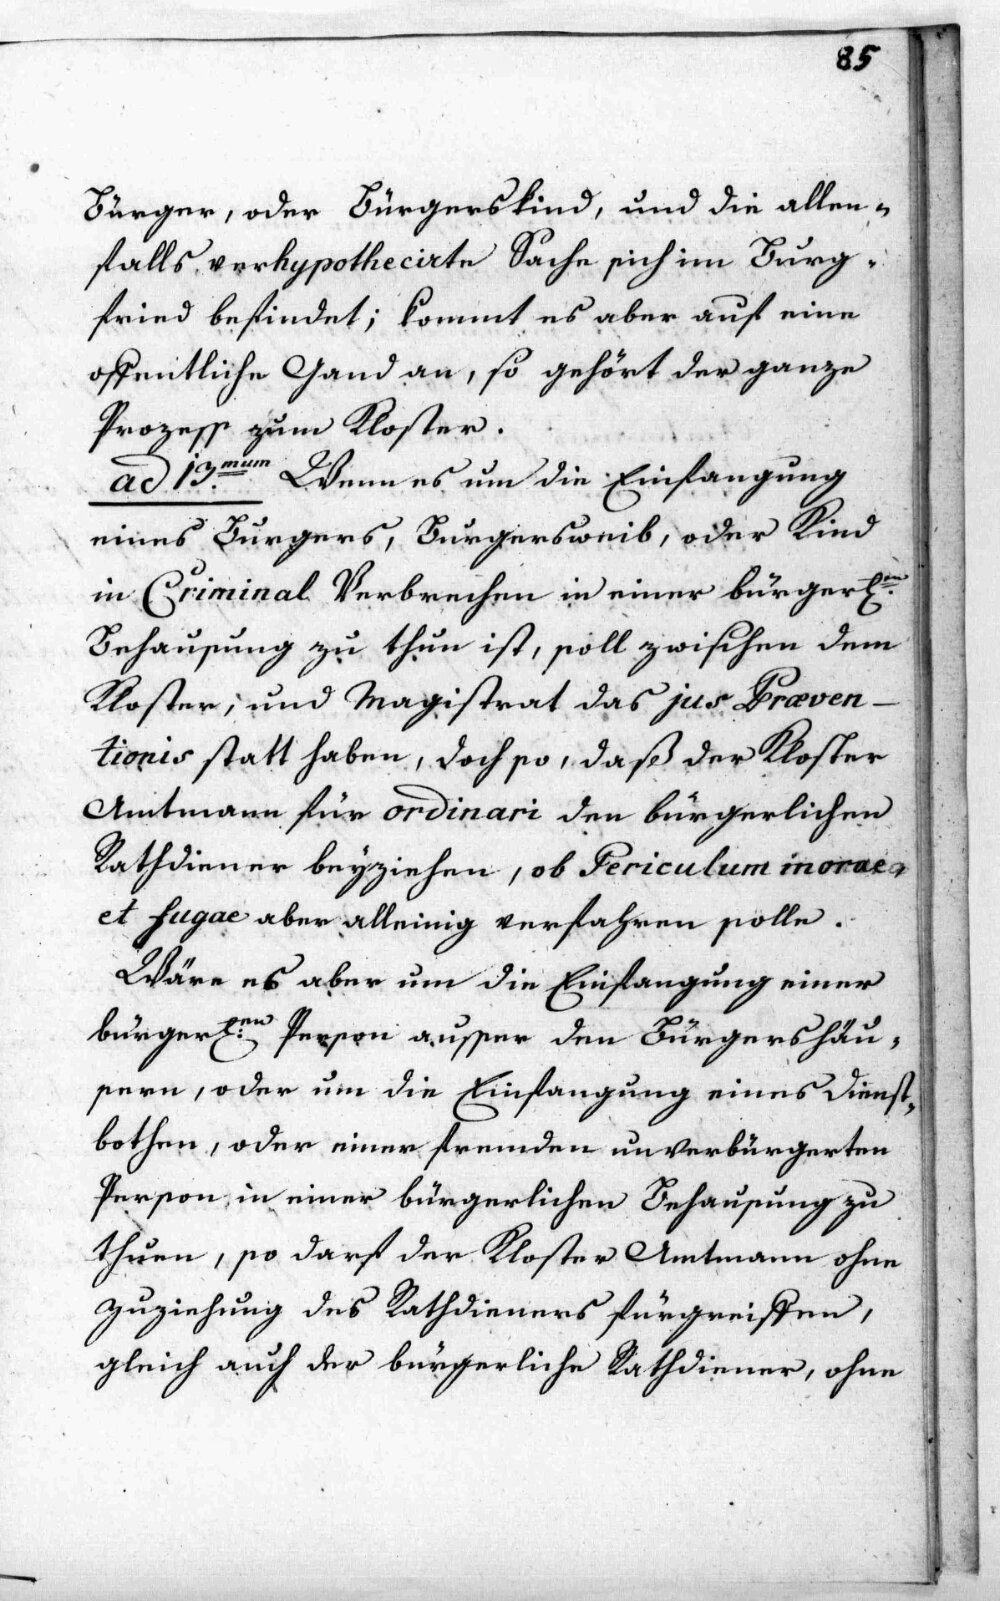 85
Bürger, oder Bürgerskind, und die allen-
falls verhypothecirte Sache sich im Burg-
fried befindet; kommt es aber auf eine
offentliche Gand an, so gehört der ganze
Prozess zum Kloster.
ad 13.mum Wenn es um die Einfangung
eines Burgers, Burgersweib, oder Kind
in Criminal Verbrechen in einer bürgerl.en
Behausung zu thun ist, soll zwischen dem
Kloster, und Magistrat das jus Præven-
tionis statt haben, doch so, daß der Kloster
Amtmann für ordinari den bürgerlichen
Rathdiener beyziehen, ob Periculum morae
et fugae aber alleinig verfahren solle.
Wäre es aber um die Einfangung einer
bürgerl.en Person ausser den Bürgershäu-
sern, oder um die Einfangung eines Dienst-
bothen, oder einer fremden unverbürgerten
Person in einer bürgerlichen Behausung zu
thuen, so darf der Kloster Amtmann ohne
Zuziehung des Rathdieners fürgreiffen,
gleich auch der bürgerliche Rathdiener, ohne